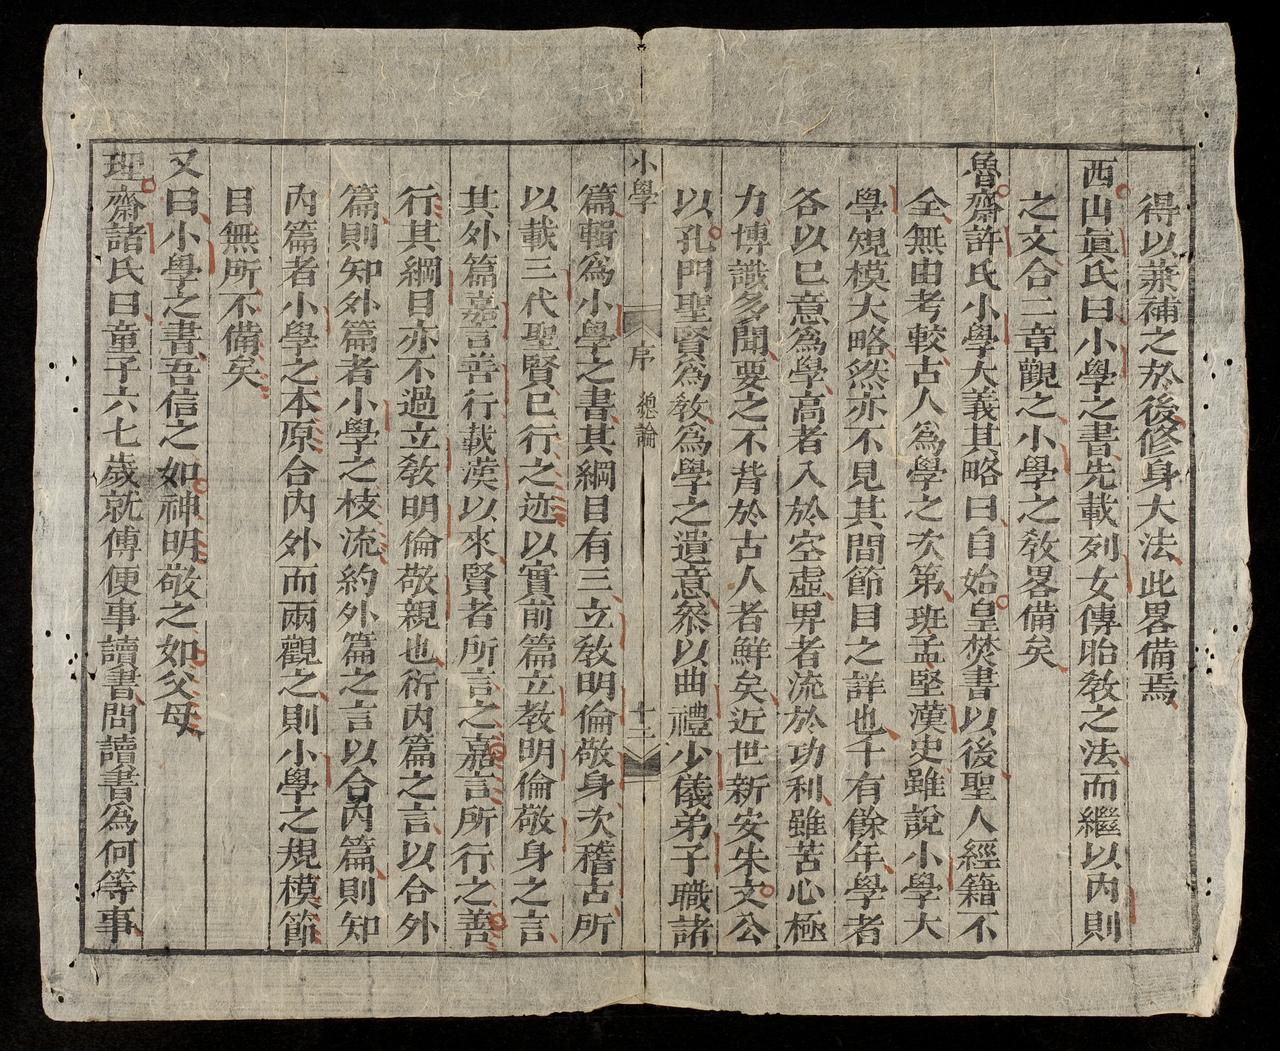 得以兼補之於後修身大法此畧備焉
西山眞氏曰小學之書先載列女傳胎敎之法而繼以内則
之文合二章觀之小學之敎畧備矣
魯齋許氏小學大義其略曰自始皇焚書以後聖人經籍不
全無由考較古人爲學之次第班孟堅漢史雖說小學大
學規模大略然亦不見其間節目之詳也千有餘年學者
各以已意爲學高者入於空虛卑者流於功利雖苦心極
力博識多聞要之不背於古人者鮮矣近世新安朱文公
以孔門聖賢爲敎爲學之遺意叅以曲禮少儀弟子職諸
小學 序 總論 十二
篇輯爲小學之書其綱目有三立敎明倫敬身次稽古所
以載三代聖賢已行之迹以實前篇立敎明倫敬身之言
其外篇嘉言善行載漢以來賢者所言之嘉言所行之善
行其綱目亦不過立敎明倫敬親也衍内篇之言以合外
篇則知外篇者小學之枝流約外篇之言以合内篇則知
内篇者小學之本原合内外而兩觀之則小學之規模節
目無所不備矣
又曰小學之書吾信之如神明敬之如父母
理齋諸氏曰童子六七歲就傅便事讀書問讀書爲何等事